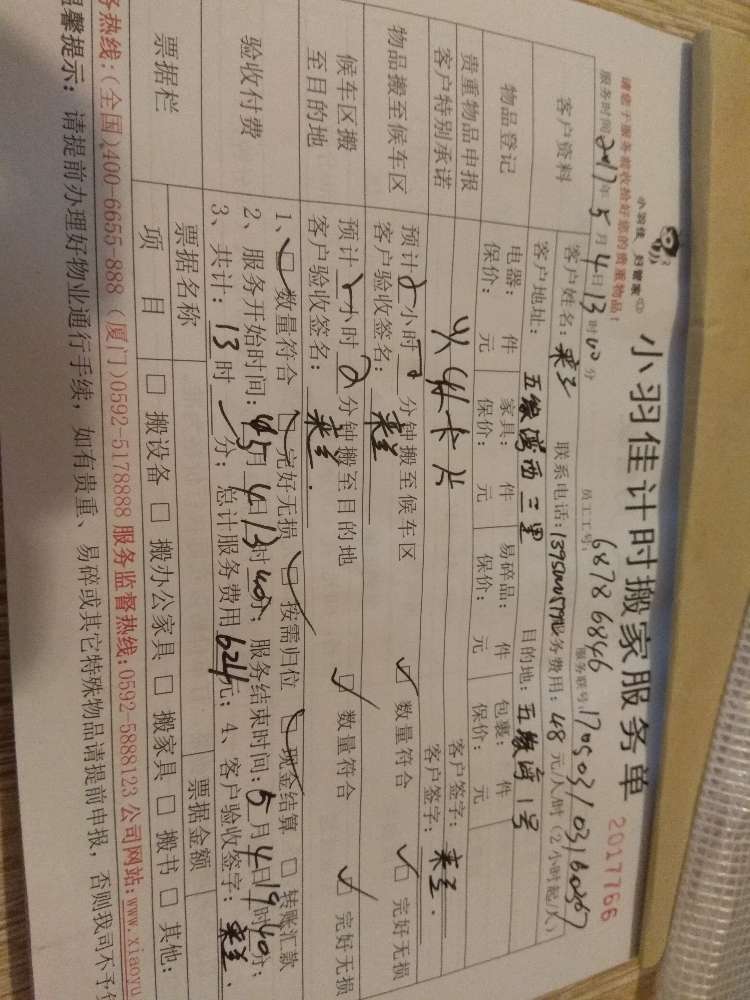 小羽佳计时搬家服务单
2017766
小羽佳 好管家
请您于服务前收拾好您的贵重物品!
员工工号: 6878 6846 服务联号:
服务时间 2017年5月4日13时00分
客户资料
客户姓名: 联系电话: 服务费用: 48 元/人/时 (2小时起/人)
客户地址: 五缘湾西二里 目的地: 五缘湾1号
物品登记
电器: 件 家具: 件 易碎品: 件 包裹: 件
保价: 元 保价: 元 保价: 元 保价: 元
贵重物品申报
客户特别承诺
客户签字:
客户签字:
物品搬至候车区
预计 小时 分钟搬至候车区 数量符合 完好无损
客户验收签名:
候车区搬
至目的地
预计 小时 分钟搬至目的地 数量符合 完好无损
客户验收签名:
验收付费
1、□ 数量符合 □ 完好无损 □ 按需归位 □ 现金结算 □ 转账汇款
2、服务开始时间: 5月4日13时40分; 服务结束时间: 5月4日19时40分;
3、共计: 13时 分; 总计服务费用 624元; 4、客户验收签字:
票据栏
票据名称 票据金额
项 目 □ 搬设备 □ 搬办公家具 □ 搬家具 □ 搬书 □ 其他:
务热线:(全国)400-6655-888 (厦门)0592-5178888 服务监督热线:0592-5888123 公司网站:www.xiaoyu
温馨提示: 请提前办理好物业通行手续,如有贵重、易碎或其它特殊物品请提前申报,否则我司不予